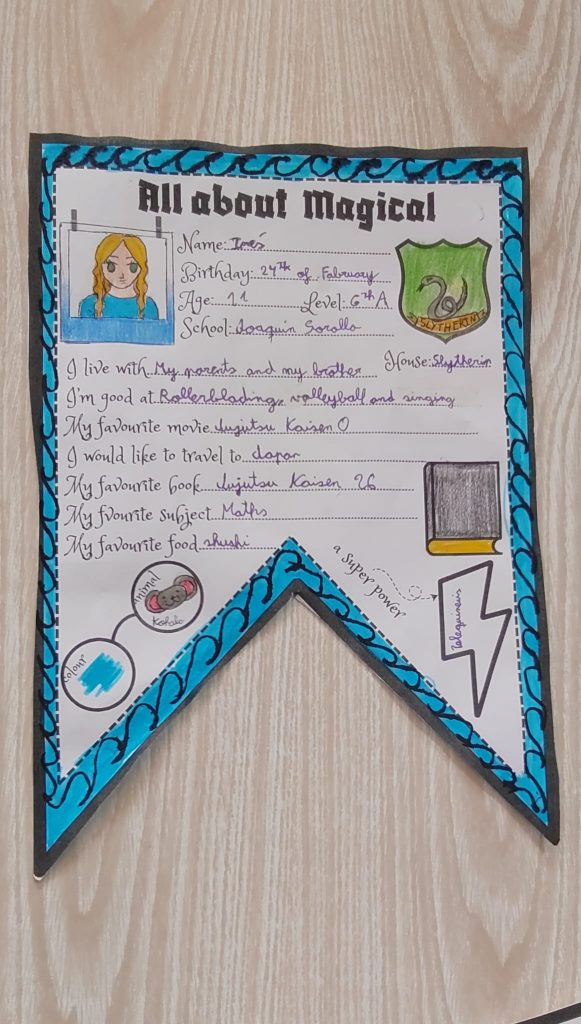 All about Magical
Name: Inés
Birthday: 24th of Fabruary
Age: 11 Level: 6th A
School: Joaquín Sorolla
SLYTHERIN
House: Slytherin
I live with My parents and my brother
I'm good at Rollerblading, volleyball and singing
My favourite movie Jujutsu Kaisen 0
I would like to travel to Japan
My favourite book Jujutsu Kaisen 26
My fvourite subject Maths
My favourite food shushi
a super power
Animal
Kohala
Colour